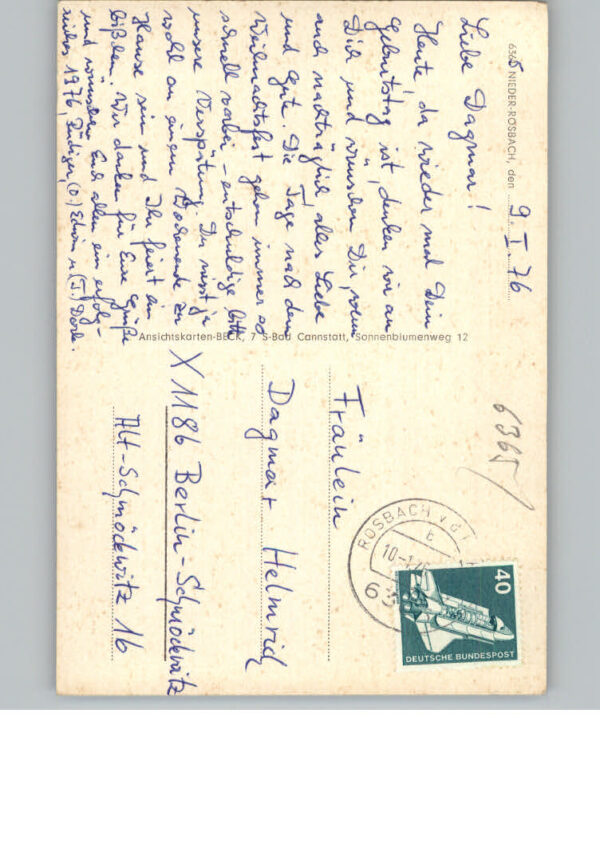 6365 NIEDER-ROSBACH, den 9. I. 76
Liebe Dagmar!
Heute, da wieder mal Dein
Geburtstag ist, denken wir an
Dich und wünschen Dir, wenn
auch nachträglich, alles Liebe
und Gute. Die Tage nach dem
Weihnachtsfest gehen immer so
schnell vorbei - entschuldige bitte
unsere Verspätung. Du wirst ja
wohl an einem Wochenende zu
Hause sein und Ihr feiert ein
bißchen. Wir danken für Eure Grüße
und wünschen Euch allen ein erfolg-
reiches 1976, Rüdiger, (O.) Edwin u. (T.) Dorle.
Ansichtskarten-BECK, 7 S-Bad Cannstatt, Sonnenblumenweg 12
6365
Fräulein
Dagmar Helmrich
X 1186 Berlin-Schmöckwitz
Alt-Schmöckwitz 16
ROSBACH v d
b
10-1.76
63
40
DEUTSCHE BUNDESPOST